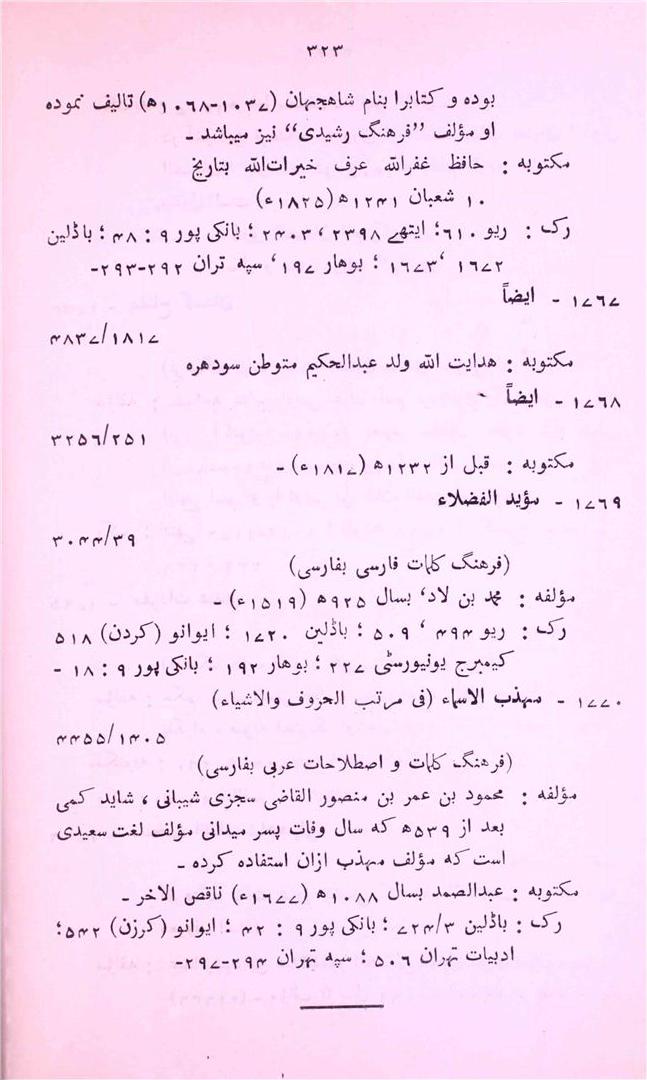 ۳۲۳
بوده و کتابرا بنام شاهجہان (۱۰۳۷-۱۰۶۸ھ) تالیف نموده
او مؤلف “فرهنگ رشیدی” نیز میباشد ـ
مکتوبه : حافظ غفرالله عرف خیرات‌الله بتاریخ
۱۰ شعبان ۱۲۴۱ھ (۱۸۲۵ء)
رک : ریو ۶۱۰؛ ایتھے ۲۳۹۸ ، ۲۴۰۳ ؛ بانکی پور ۹ : ۴۸ ؛ باڈلین
۱۶۷۲ ‘ ۱۶۷۳ ؛ بوهار ۱۹۷ ‘ سپه تران ۲۹۲-۲۹۳-
۱۷۶۷ ـ ایضاً
۴۸۳۷/۱۸۱۷
مکتوبه : هدایت الله ولد عبدالحکیم متوطن سودهره
۱۷۶۸ ـ ایضاً
۳۲۵۶/۲۵۱
مکتوبه : قبل از ۱۲۳۲ھ (۱۸۱۷ء) ـ
۱۷۶۹ ـ مؤید الفضلاء
۳۰۴۴/۳۹
(فرهنگ کلمات فارسی بفارسی)
مؤلفه : محمد بن لاد‘ بسال ۹۲۵ھ (۱۵۱۹ء) ـ
رک : ریو ۴۹۴ ‘ ۵۰۹ ؛ باڈلین ۱۷۲۰ ؛ ایوانو (کردن) ۵۱۸
کیمبرج یونیورسٹی ۲۲۷ ؛ بوهار ۱۹۲ ؛ بانکی پور ۹ : ۱۸ ـ
۱۷۷۰ ـ مہذب الاسماء (فی مرتب الحروف والاشیاء)
۴۴۵۵/۱۴۰۵
(فرهنگ کلمات و اصطلاحات عربی بفارسی)
مؤلفه : محمود بن عمر بن منصور القاضی سجزی شیبانی ، شاید کمی
بعد از ۵۳۹ھ که سال وفات پسر میدانی مؤلف لغت سعیدی
است که مؤلف مہذب ازان استفاده کرده ـ
مکتوبه : عبدالصمد بسال ۱۰۸۸ھ (۱۶۷۷ء) ناقص الاخر ـ
رک : باڈلین ۷۲۴/۳ ؛ بانکی پور ۹ : ۴۲ ؛ ایوانو (کرزن) ۵۴۲؛
ادبیات تہران ۵۰۶ ؛ سپه تہران ۲۹۴-۲۹۷-